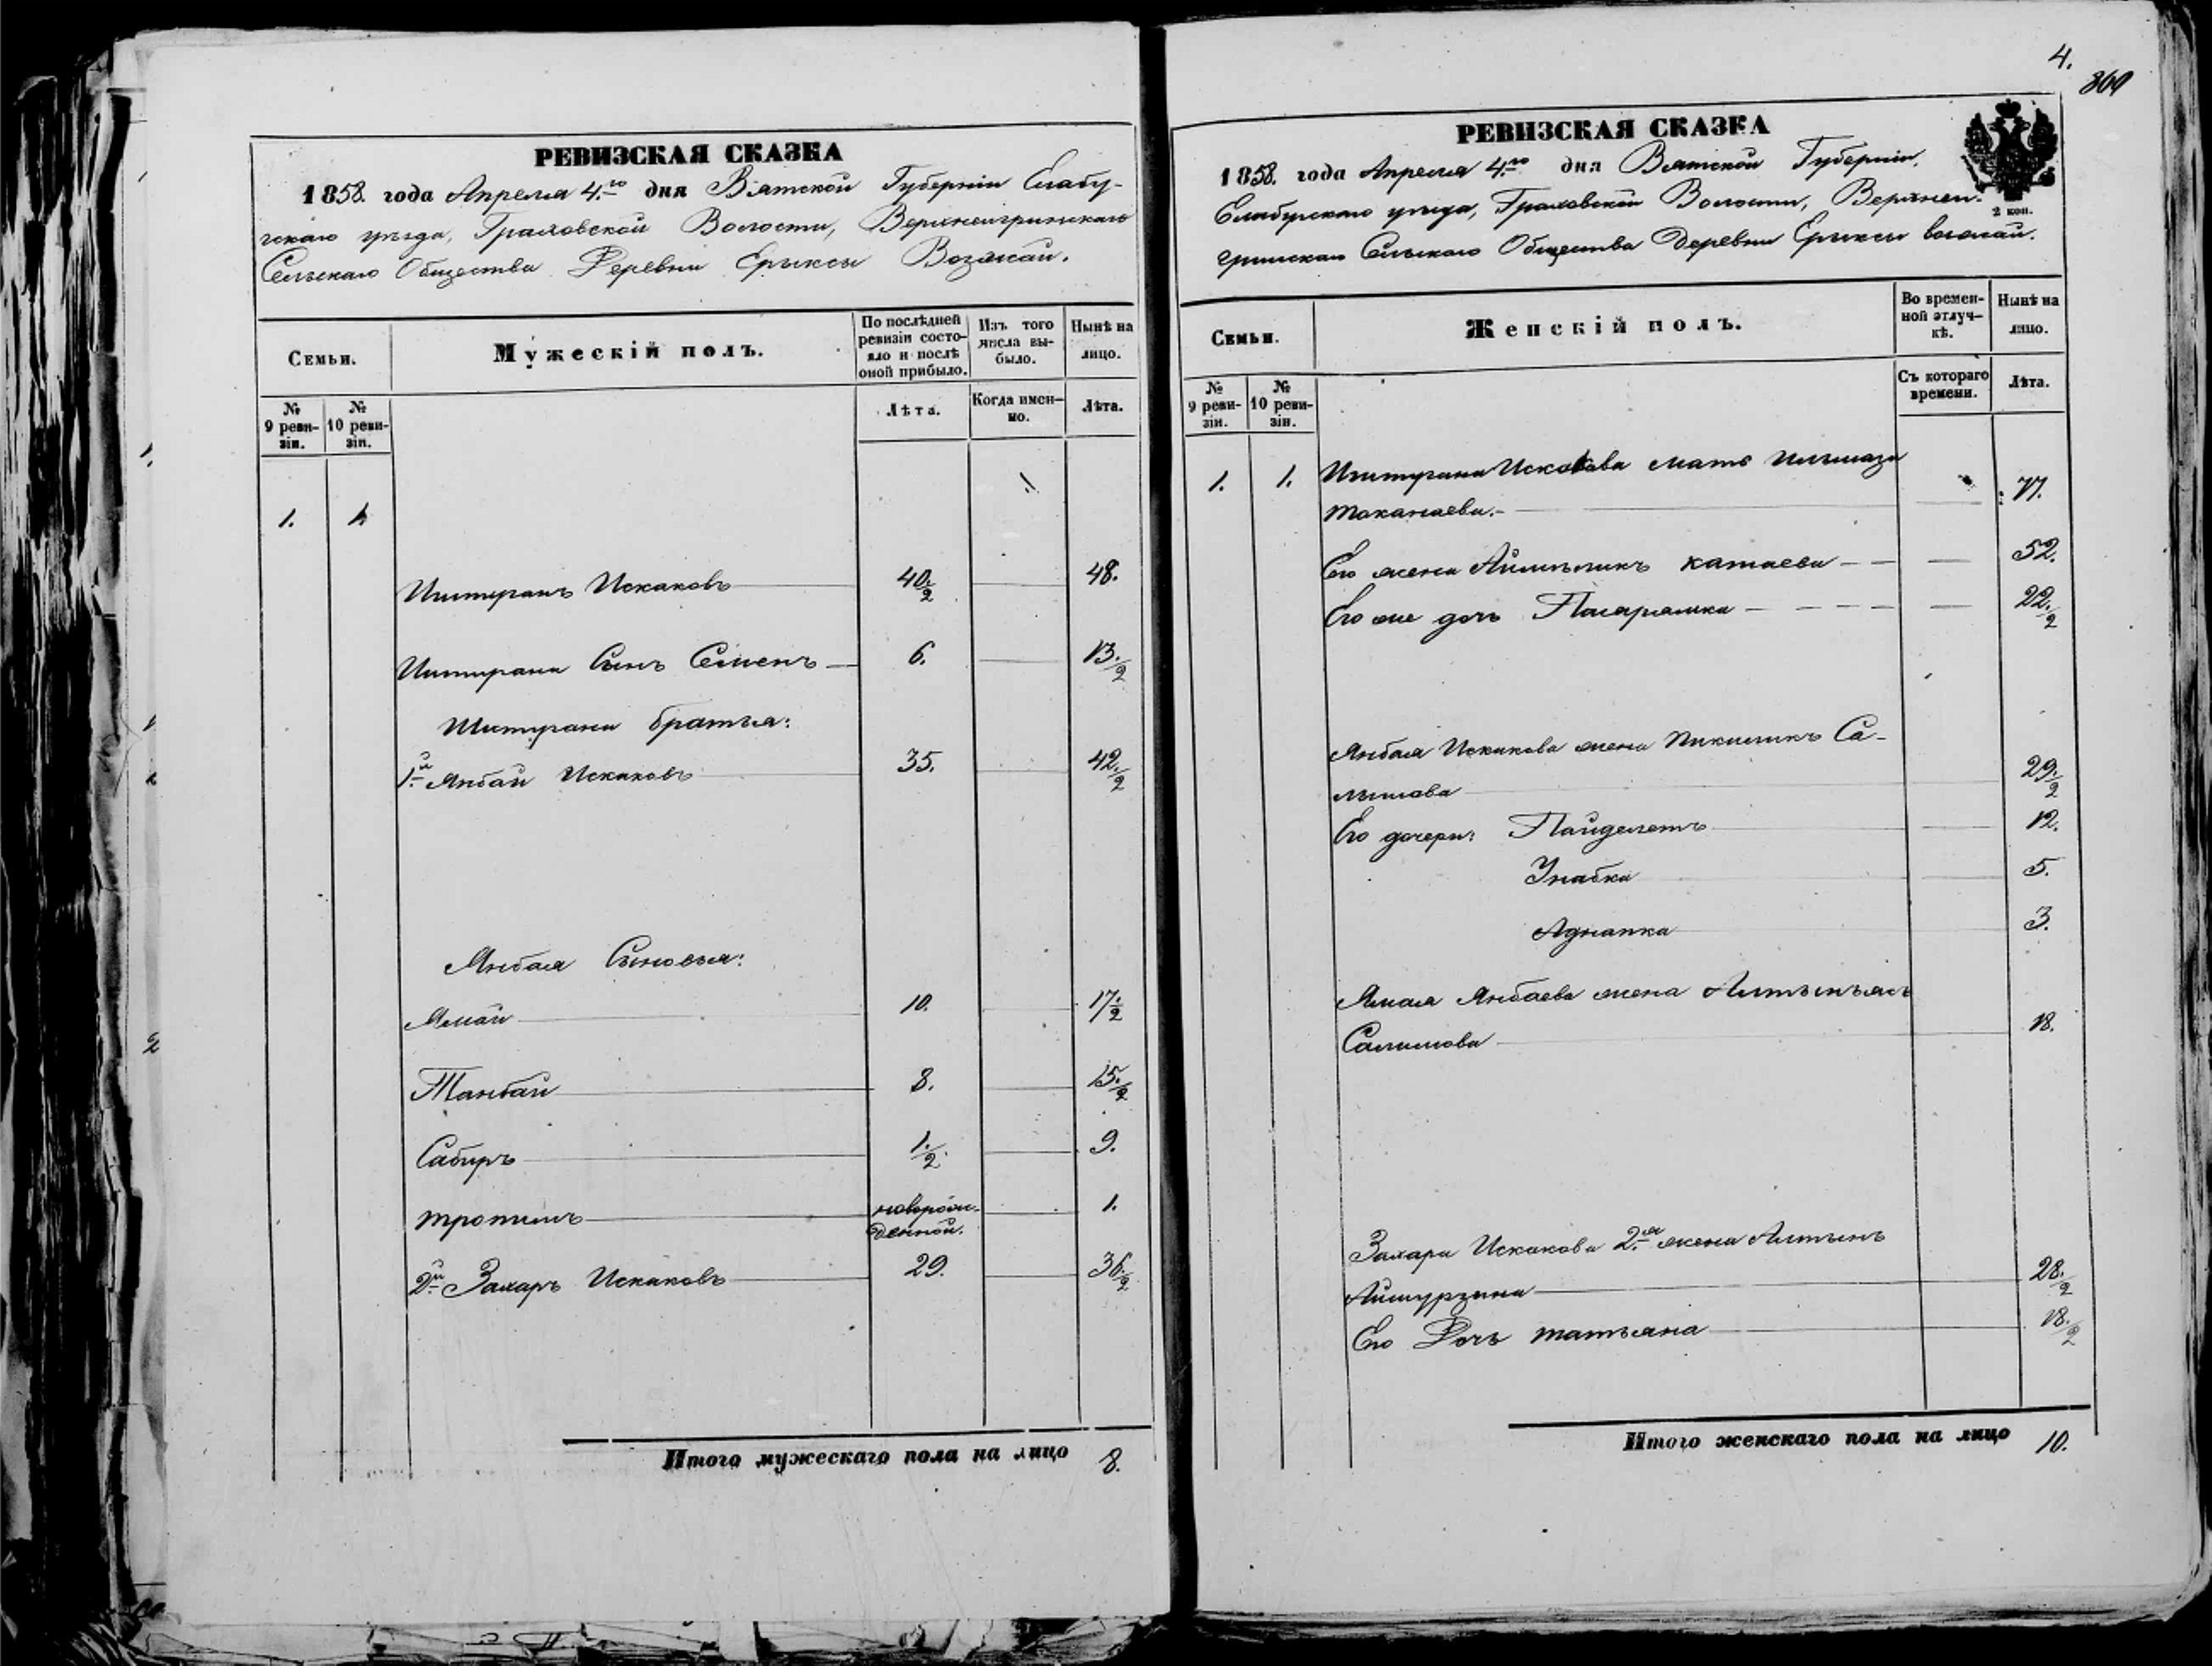 РЕВИЗСКАЯ СКАЗКА
1858. года Апреля 4.го дня Вятской Губерніи Елабу-
гскаго уѣзда, Граховской Волости, Верхнеигринскаго
Сельскаго Общества Деревни Ерыксы Возжай.
Семьи.
Мужескій полъ.
По послѣдней
ревизіи состо-
яло и послѣ
оной прибыло.
Изъ того
числа вы-
было.
Нынѣ на
лицо.
№
9 реви-
зіи.
№
10 реви-
зіи.
Лѣта.
Когда имен-
но.
Лѣта.
1. 1.
Иштиранъ Искаковъ 40 1/2 48.
Сынъ Семенъ 6. 13. 1/2
братья:
1й Янбай Искаковъ 35. 42. 1/2
Янбая Сыновья:
Ямай 10. 17. 1/2
Танбай 8. 15. 1/2
Сабиръ 1/2 9.
тропимъ новорож-
денной. 1.
2й Захаръ Искаковъ 29. 36. 1/2
Итого мужескаго пола на лицо 8.
4.
РЕВИЗСКАЯ СКАЗКА
1858. года Апреля 4.го дня Вятской Губерніи,
Елабугскаго уѣзда, Граховской Волости, Верхнеи-
2 коп.
гринскаго Сельскаго Общества Деревни Ерыксы возжай.
Семьи.
Женскій полъ.
Во времен-
ной отлуч-
кѣ.
Нынѣ на
лицо.
№
9 реви-
зіи.
№
10 реви-
зіи.
Съ котораго
времени.
Лѣта.
1. 1. Искакова мать
71.
Его жена 52.
Его же дочь 22. 1/2
Янбая Искакова жена Са-
29. 1/2
Его дочери: Пайделетъ 12.
Унабка 5.
Аднапка 3.
Ямая Янбаева жена
Салимова 18.
Захара Искакова 2.я жена Алтынъ
28. 1/2
Его Дочь татьяна 18. 1/2
Итого женскаго пола на лицо 10.